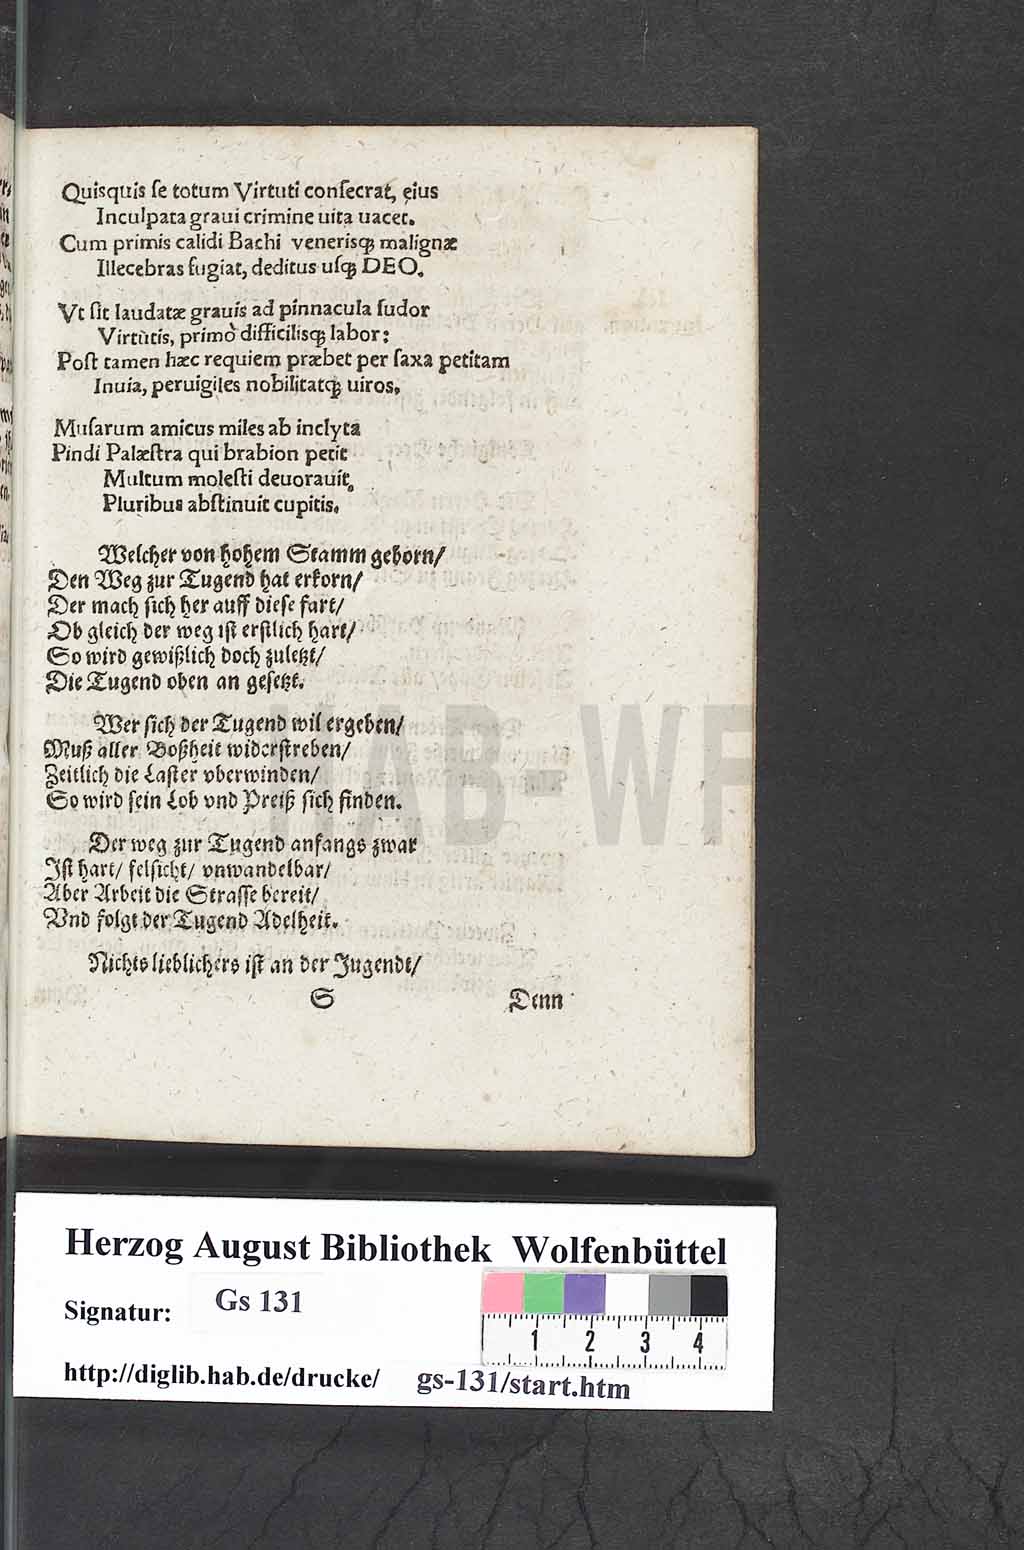 Quisquis ſe totum Virtuti conſecrat, ejus
Inculpata graui crimine uita uacet.
Cum primis calidi Bachi venerisq; malignæ
Illecebras fugiat, deditus uſq; DEO.
Vt ſit laudatæ grauis ad pinnacula ſudor
Virtùtis, primò difficilisq; labor:
Poſt tamen hæc requiem præbet per ſaxa petitam
Inuia, peruigiles nobilitatq; uiros.
Muſarum amicus miles ab inclyta
Pindi Palæſtra qui brabion petit
Multum moleſti deuorauit,
Pluribus abſtinuit cupitis.
Welcher von hohem Stamm geborn/
Den Weg zur Tugend hat erkorn/
Der mach ſich her auff dieſe fart/
Ob gleich der weg iſt erſtlich hart/
So wird gewißlich doch zuletzt/
Die Tugend oben an geſetzt.
Wer ſich der Tugend wil ergeben/
Muß aller Boßheit widerſtreben/
Zeitlich die Laſter vberwinden/
So wird ſein Lob vnd Preiß ſich finden.
Der weg zur Tugend anfangs zwar
Iſt hart/ felſicht/ vnwandelbar/
Aber Arbeit die Straſſe bereit/
Vnd folgt der Tugend Adelheit.
Nichts lieblichers iſt an der Jugendt/
S Denn
HAB-WF
Herzog August Bibliothek Wolfenbüttel
Signatur: Gs 131
1 2 3 4
http://diglib.hab.de/drucke/ gs-131/start.htm